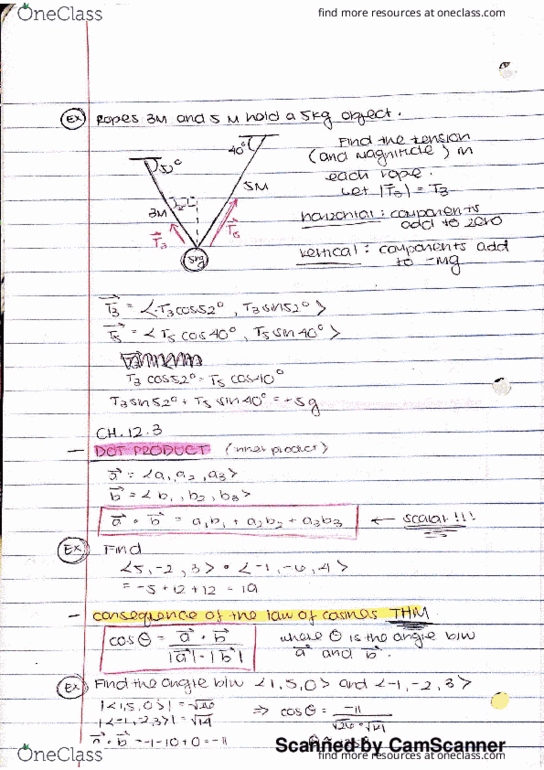 OneClass
find more resources at oneclass.com
Ex Ropes 3M and 5 M hold a 5kg object.
Find the tension
(and magnitude) in
each rope.
Let |T₃| = T₃
horizontal: components
add to zero
vertical: components add
to -mg
52°
40°
3M
5M
T₃
T₅
5kg
T₃ = <-T₃cos52°, T₃sin52°>
T₅ = <T₅ cos40°, T₅ sin40°>
T₃ cos52° = T₅ cos40°
T₃ sin52° + T₅ sin40° = -5g
CH. 12.3
- DOT PRODUCT (inner product)
a = <a₁, a₂, a₃>
b = <b₁, b₂, b₃>
a · b = a₁b₁ + a₂b₂ + a₃b₃ ← scalar!!!
Ex Find
<5, -2, 3> · <-1, -6, 4>
= -5 + 12 + 12 = 19
- consequence of the law of cosines THM
cosθ = a · b / |a| · |b| where θ is the angle b/w
a and b.
Ex Find the angle b/w <1, 5, 0> and <-1, -2, 3>
|<1, 5, 0>| = √26 ⇒ cosθ = -11 / √26 √14
|<-1, -2, 3>| = √14
a · b = -1 - 10 + 0 = -11
Scanned by CamScanner
OneClass
find more resources at oneclass.com